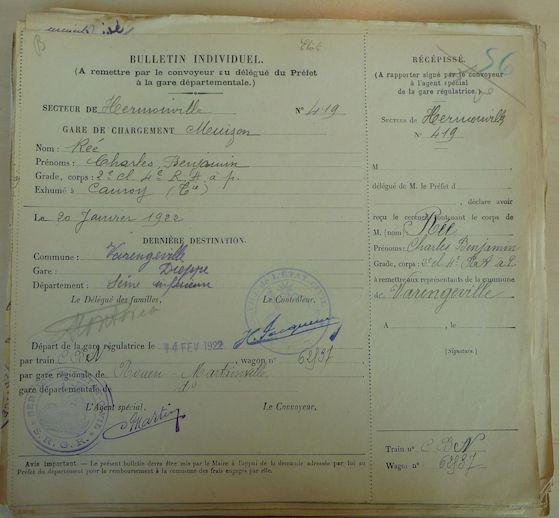 B
État
BULLETIN INDIVIDUEL.
(A remettre par le convoyeur au délégué du Préfet
à la gare départementale.)
SECTEUR DE Hermonville N° 419
GARE DE CHARGEMENT Muizon
Nom : Reé
Prénoms : Charles Benjamin
Grade, corps : 2e cl 4e R. A à p.
Exhumé à Cauroy
Le 20 Janvier 1922
DERNIÈRE DESTINATION.
Commune : Varengeville
Gare : Dieppe
Département : Seine inférieure
Le Délégué des familles,
Le Contrôleur,
H. Jacquemin
Départ de la gare régulatrice le 14 FEV 1922
par train C B N, wagon n° 62937
par gare régionale de Rouen-Martinville
gare départementale de do
L'Agent spécial,
Le Convoyeur,
Martin
S. R. G. R.
Avis important — Le présent bulletin devra être mis par le Maire à l'appui de la demande adressée par lui au
Préfet du département pour le remboursement à la commune des frais engagés par elle.
RÉCÉPISSÉ. 56
(A rapporter signé par le convoyeur
à l'agent spécial
de la gare régulatrice.)
SECTEUR DE Hermonville
N° 419
M
délégué de M. le Préfet d
, déclare avoir
reçu le cercueil contenant le corps de
M. (nom) Reé
Prénoms : Charles Benjamin
Grade, corps : 2e cl 4e R.A à P.
à remettre aux représentants de la commune
de Varengeville
A , le
(Signature).
Train n° C B N
Wagon n° 62937